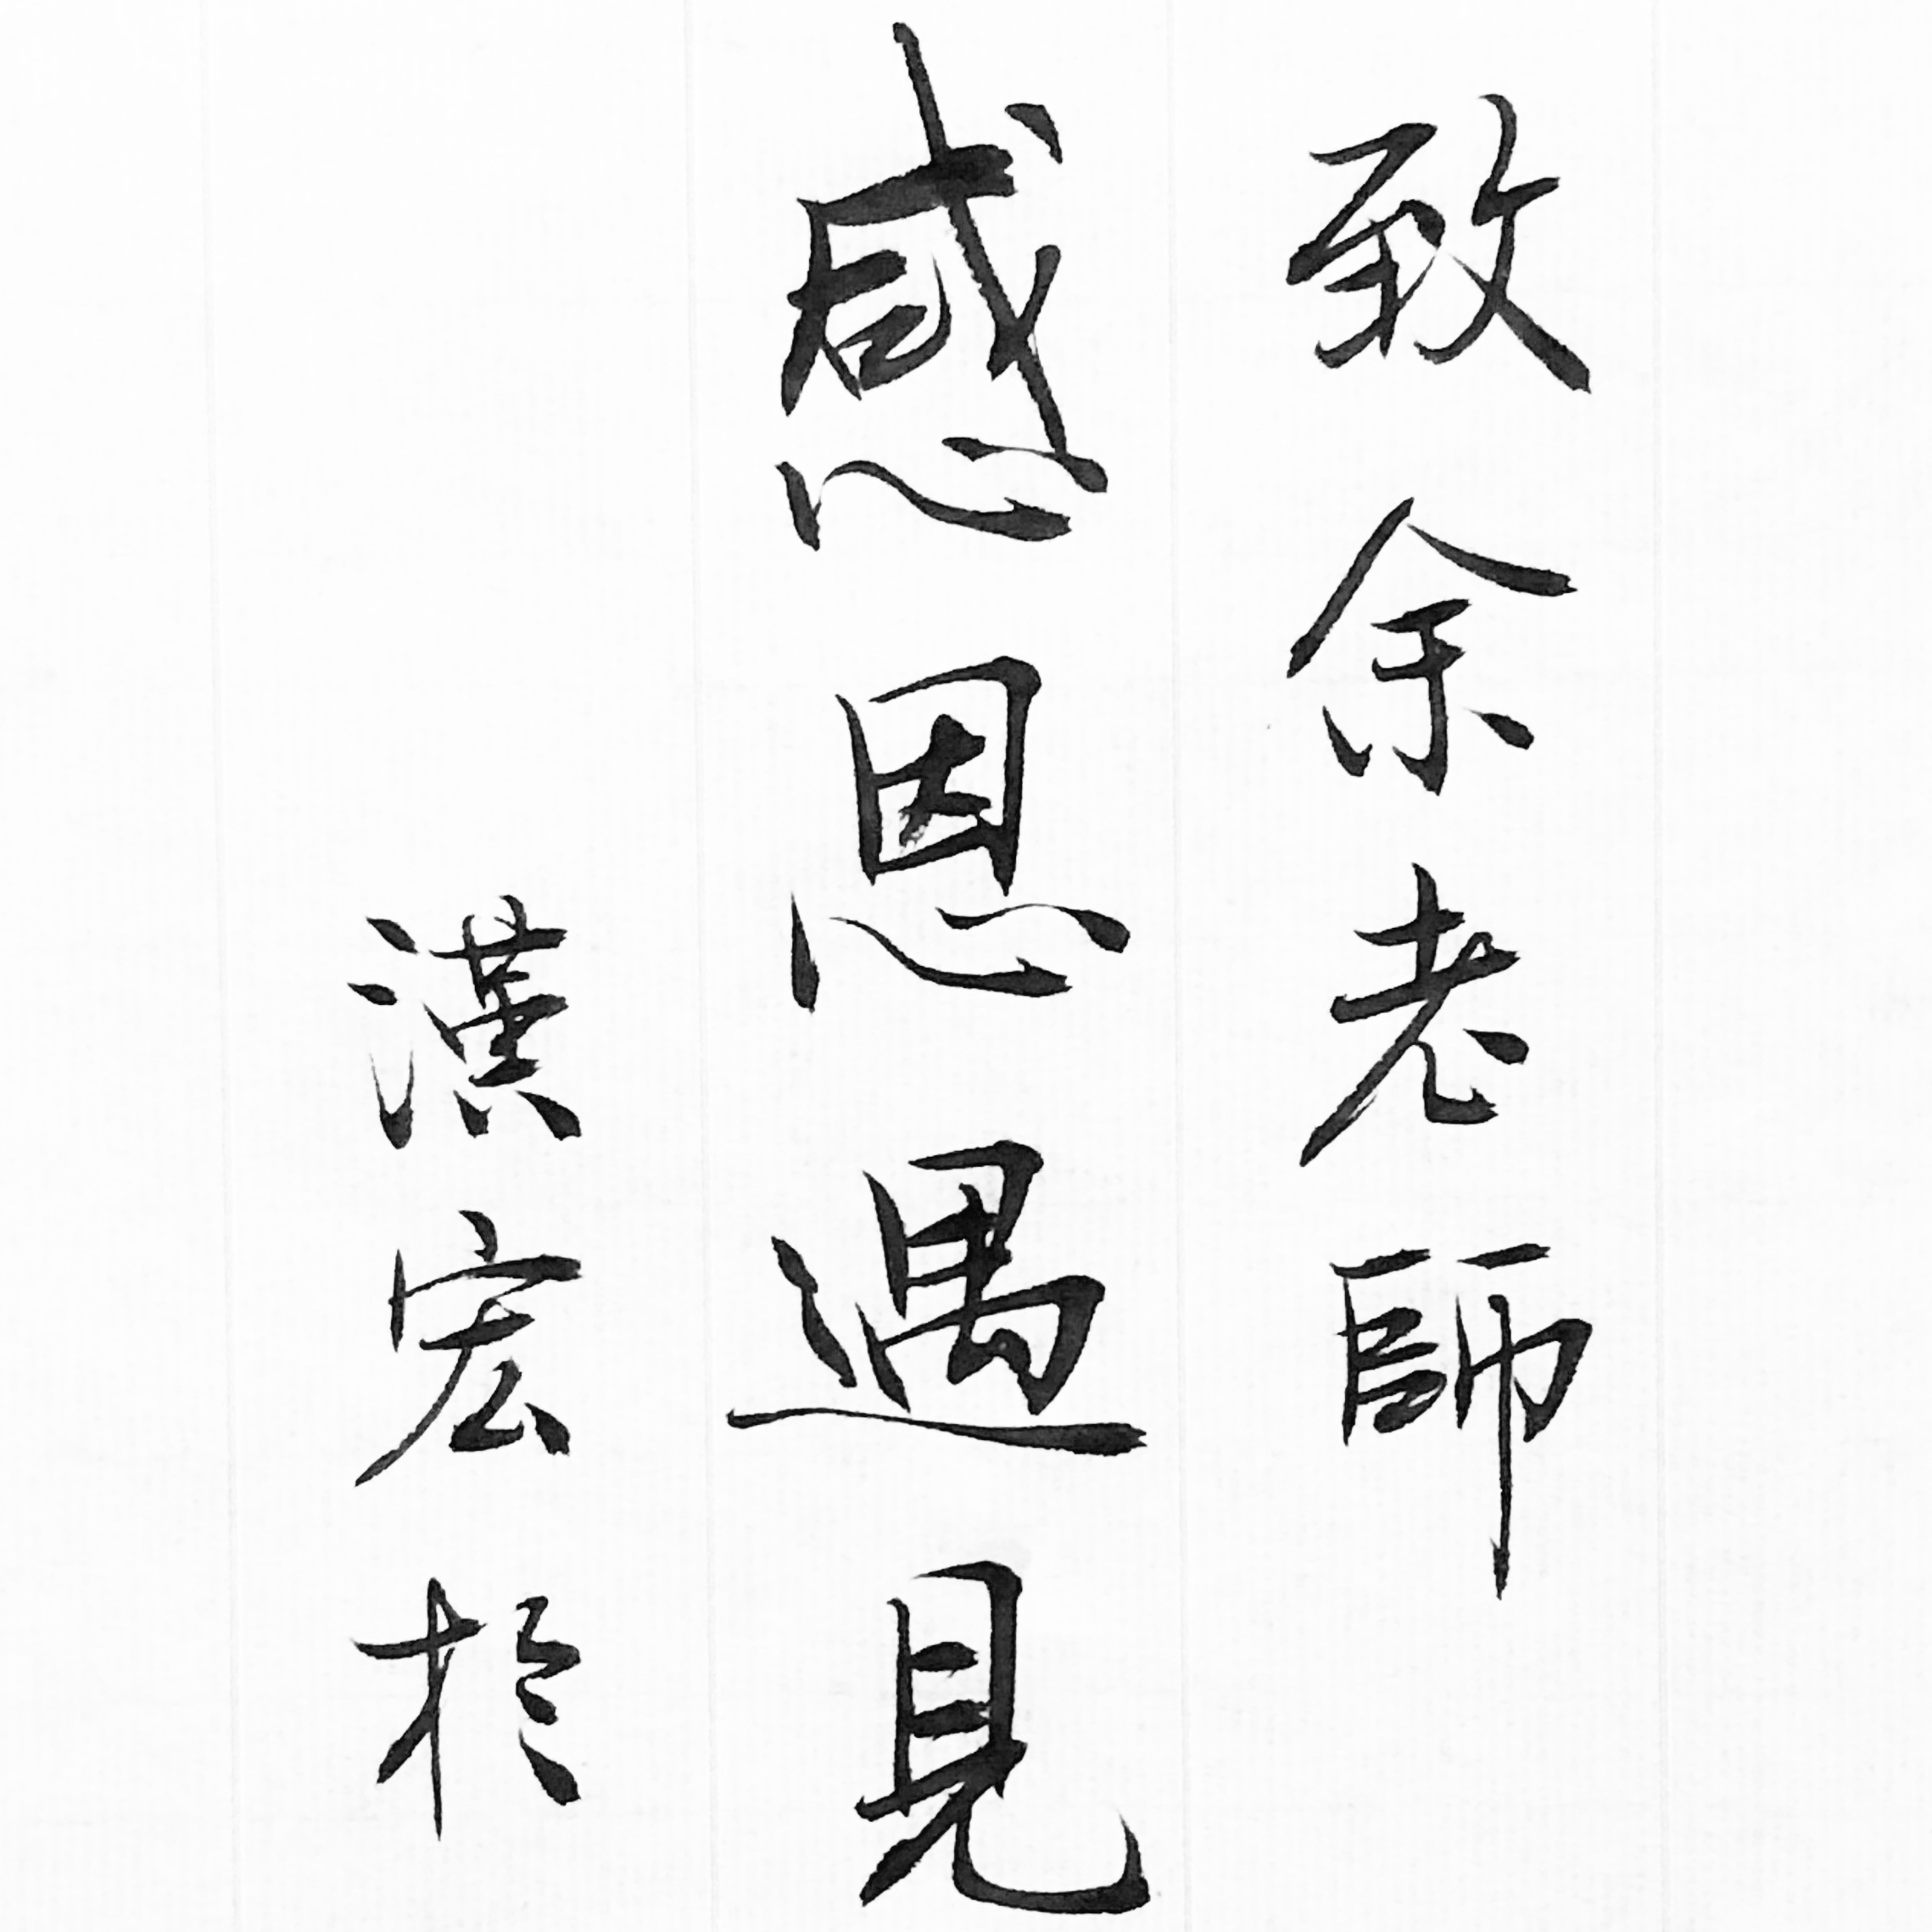 致余老師
感恩遇見
漢宏於